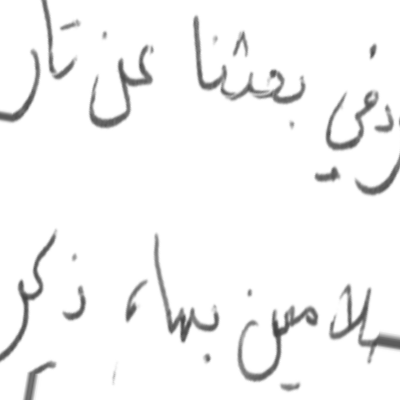 وفي بحثنا عن تار
سلامين بها، ذكر